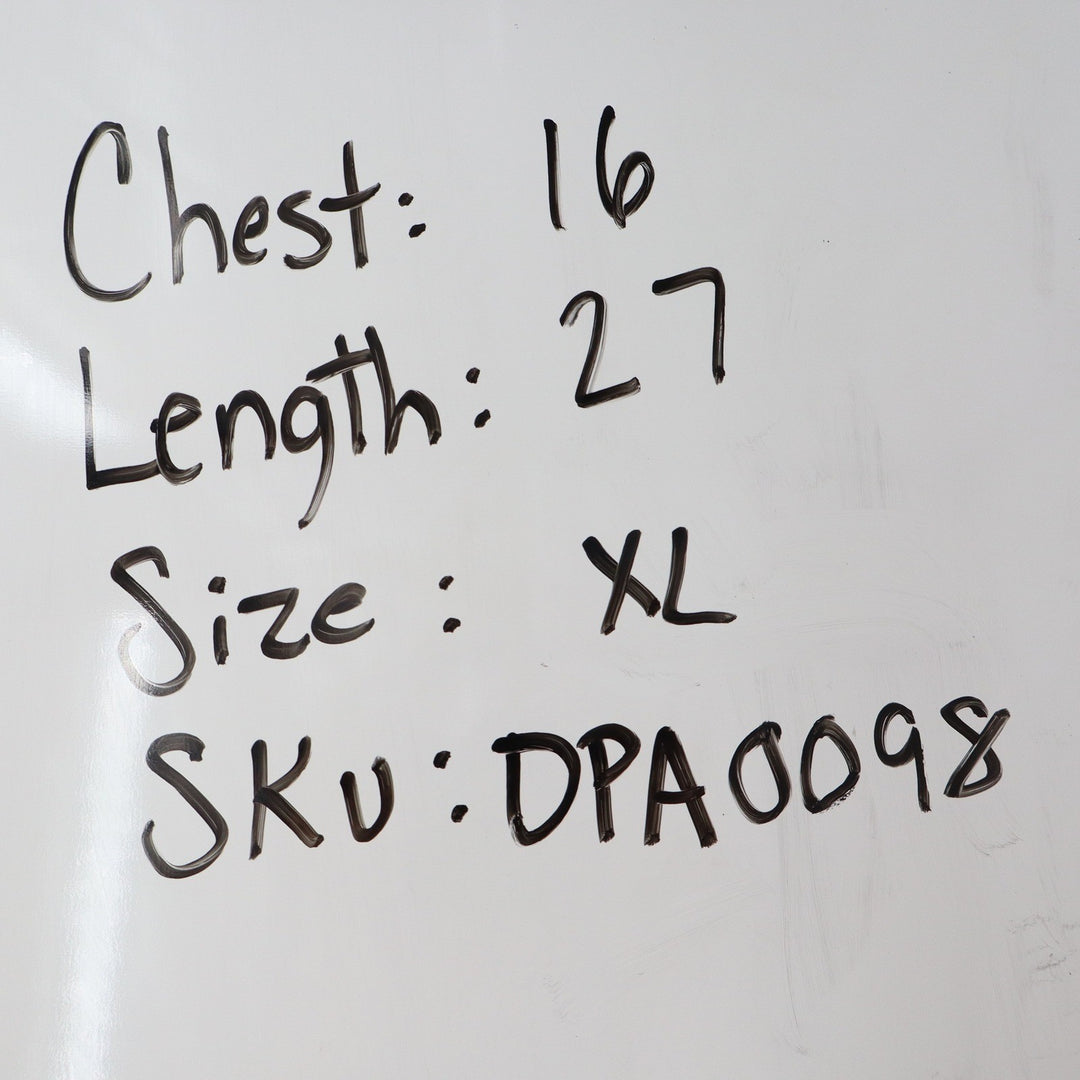 Chest: 16
Length: 27
Size: XL
SKU: DPA0098